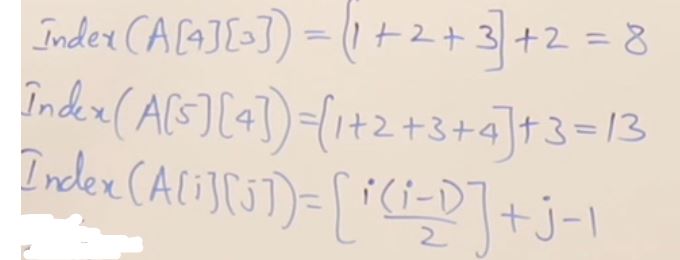 Index(A[4][3]) = [1+2+3]+2 = 8
Index(A[5][4])=[1+2+3+4]+3=13
Index(A[i][j])=[i(i-1)/2]+j-1